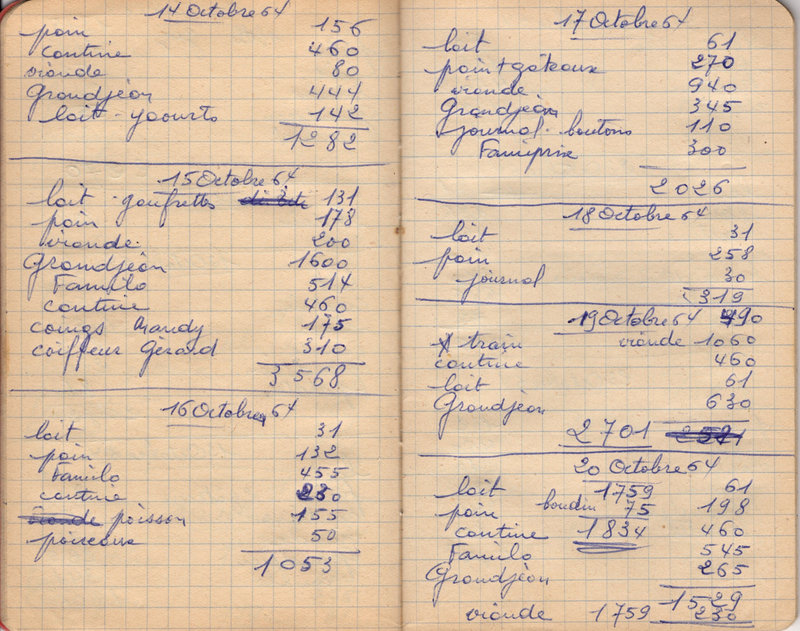 14 Octobre 64
pain 156
cantine 460
viande 80
Grandjean 444
lait - yaourts 142
1282
15 Octobre 64
lait - gaufrettes 131
pain 178
viande 200
Grandjean 1600
Familo 514
cantine 460
coings Mandy 175
coiffeur Gérard 310
3568
16 Octobre 64
lait 31
pain 132
Familo 455
cantine 230
viande poisson 155
poireaux 50
1053
17 Octobre 64
lait 61
pain + gâteaux 270
viande 940
Grandjean 345
journal - boutons 110
Famiprix 300
2026
18 Octobre 64
lait 31
pain 258
journal 30
319
19 Octobre 64 490
train viande 1060
cantine 460
lait 61
Grandjean 630
2701 2521
20 Octobre 64
lait 1759 61
pain boudin 75 198
cantine 1834 460
Familo 545
Grandjean 265
1529
viande 1759 230